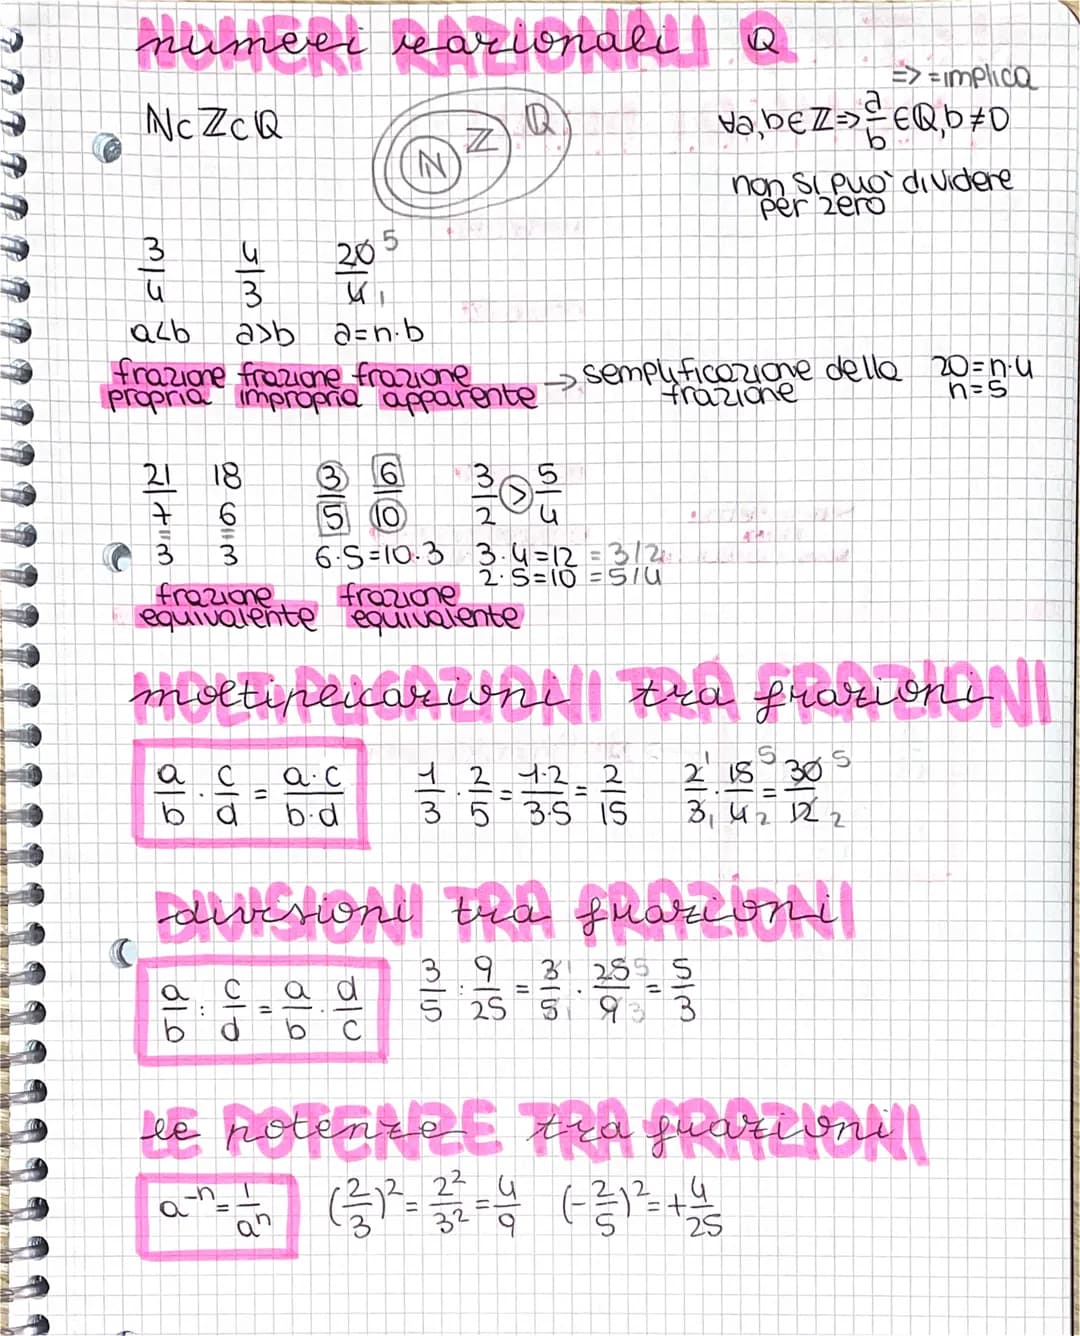 numeri razionali Q
=> = implica
N⊂Z⊂Q
N Z Q
∀a,b∈Z => a/b ∈Q, b≠0
non si può dividere
per zero
3/4 4/3 20/4 5 1
a<b a>b a=n·b
frazione propria frazione impropria frazione apparente → semplificazione della frazione 20=n·4
n=5
21/7 18/6 3/5 6/10 3/2 > 5/4
= = 
3 3 6·5=10·3 3·4=12 =3/2
2·5=10 =5/4
frazione equivalente frazione equivalente
moltiplicazioni tra frazioni
a/b · c/d = a·c/b·d 1/3 · 2/5 = 1·2/3·5 = 2/15 2/3 1 1 · 15/4 5 2 = 30/12 5 2
divisioni tra frazioni
a/b : c/d = a/b · d/c 3/5 : 9/25 = 3/5 1 1 · 25/9 5 3 = 5/3
le potenze tra frazioni
a⁻ⁿ = 1/aⁿ (2/3)² = 2²/3² = 4/9 (-2/5)² = +4/25